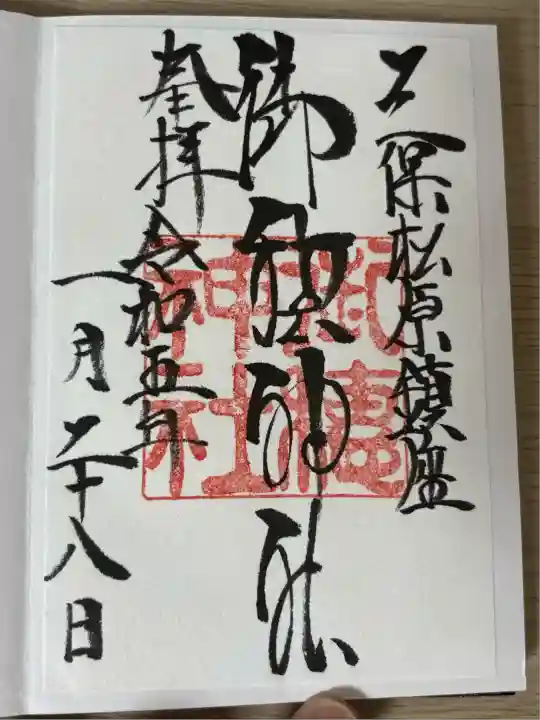 三保松原鎮座
御穂神社
奉拝 令和五年
一月二十八日
御穗
神社